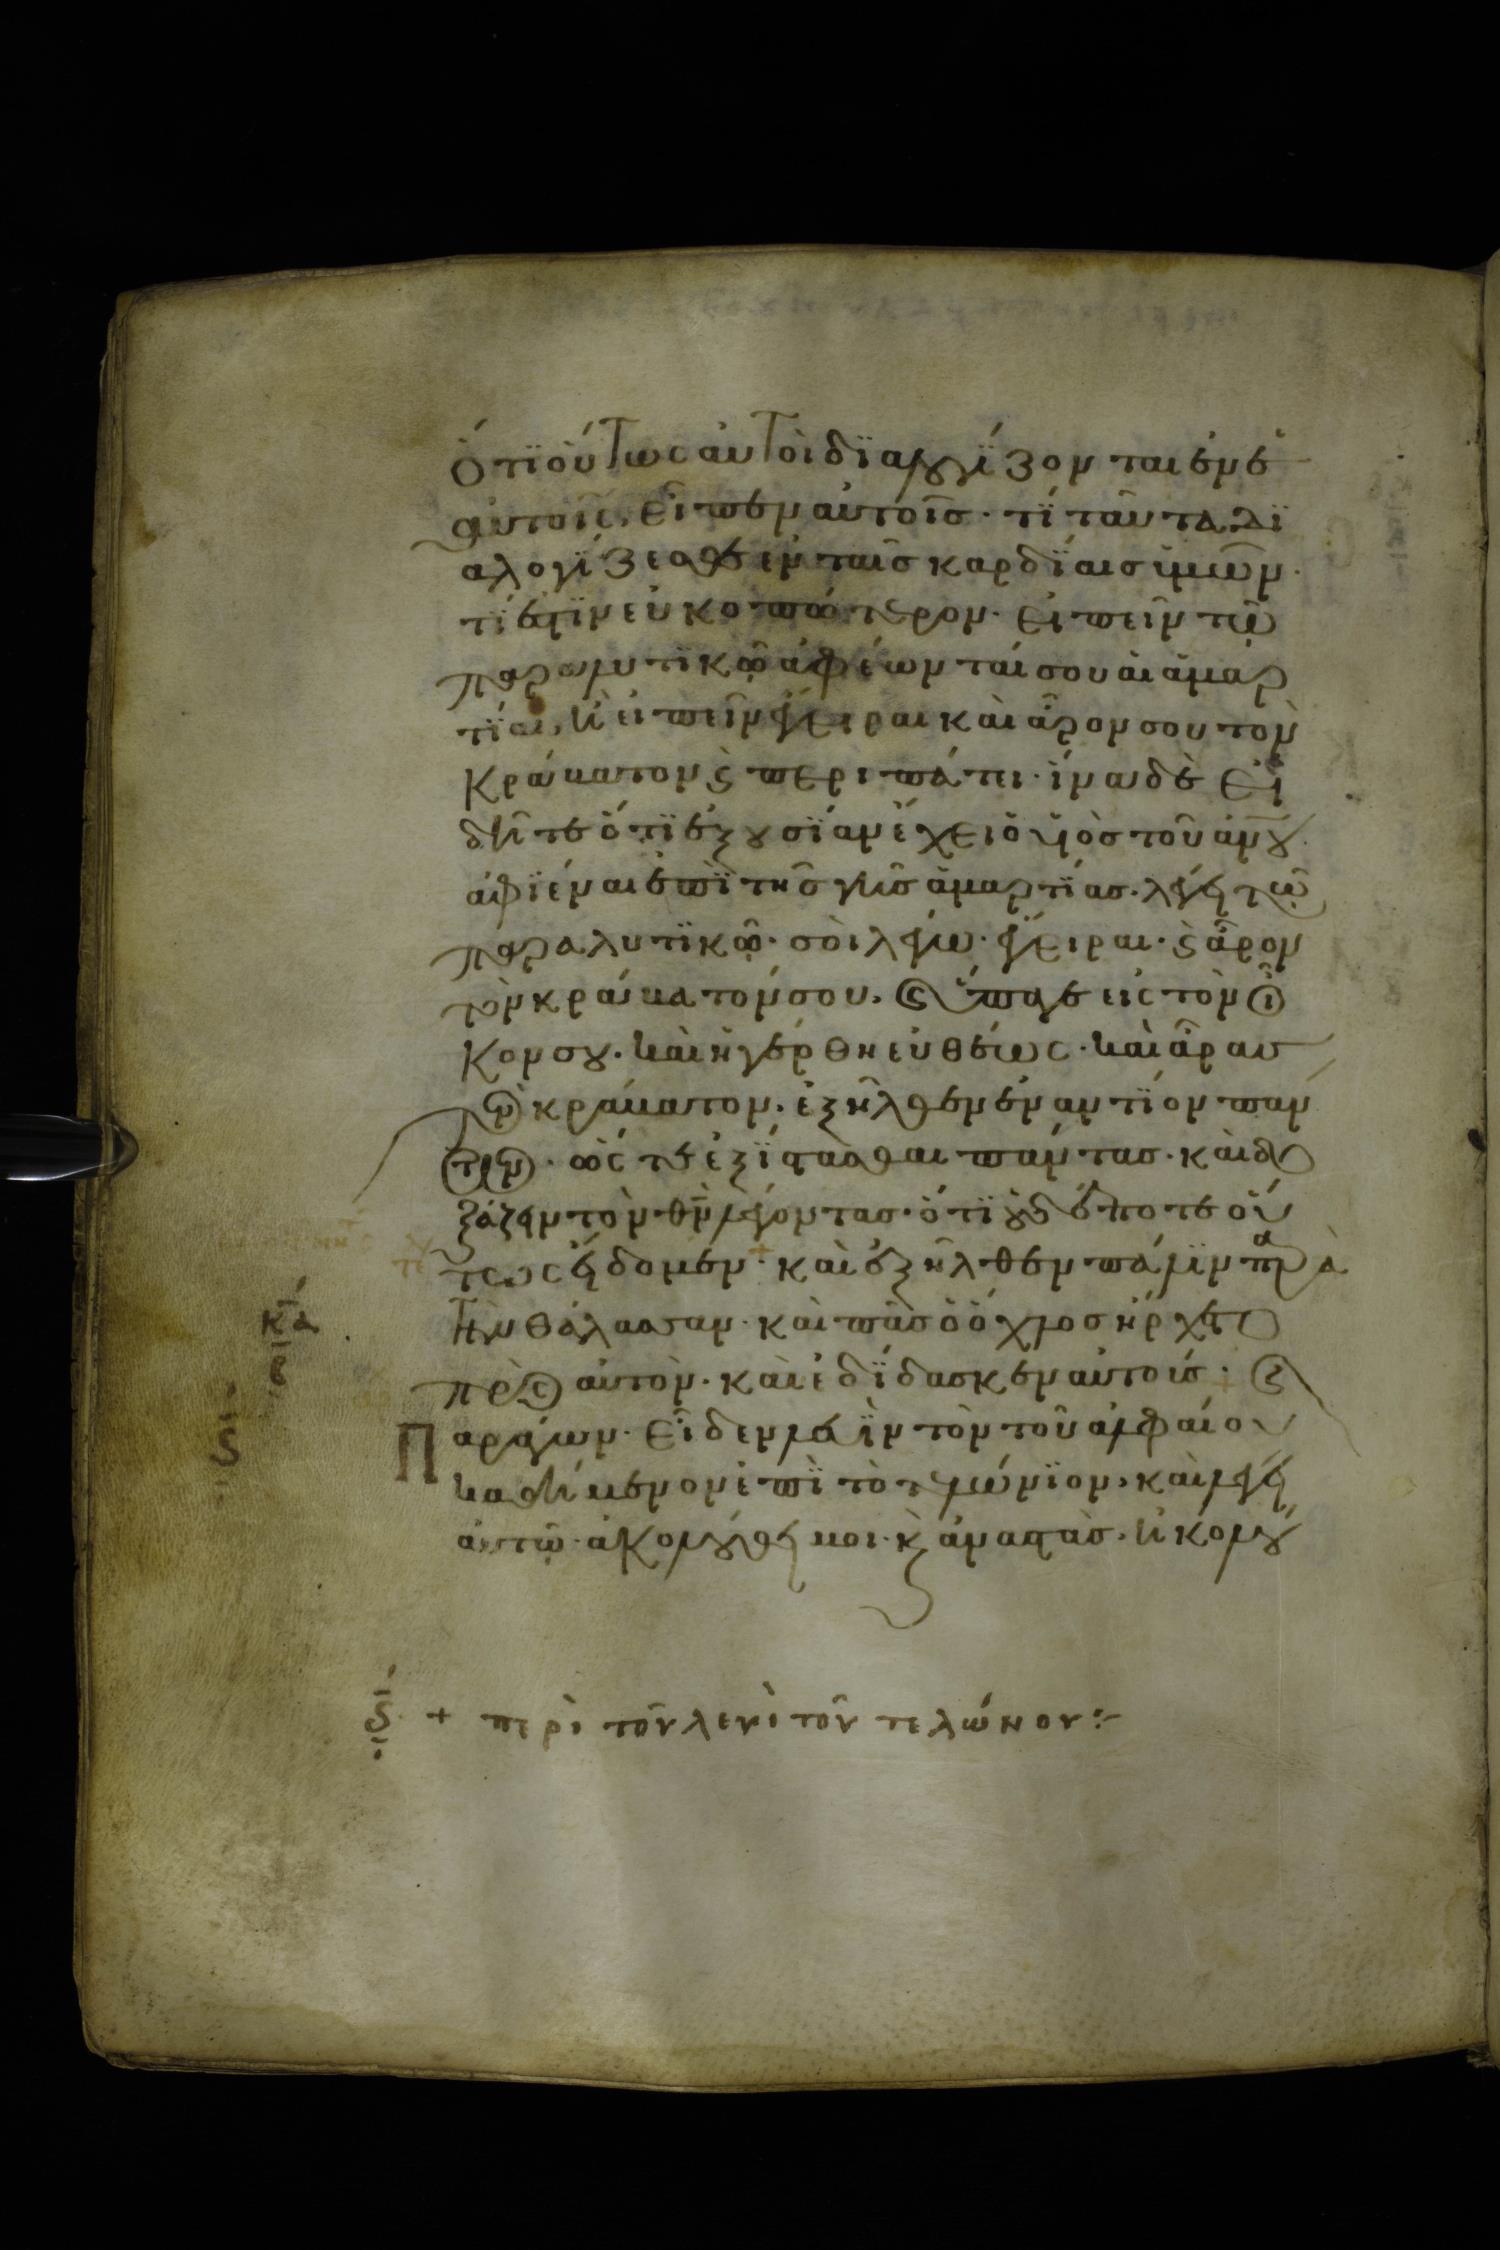 ὅτι οὕτως αὐτοὶ διαλογίζονται ἐν ἑ
αυτοῖς, εἶπεν αὐτοῖς· τί ταῦτα δι
αλογίζεσθε ἐν ταῖς καρδίαις ὑμῶν·
τί ἐστιν εὐκοπώτερον· εἰπεῖν τῷ
παραλυτικῷ ἀφέωνταί σου αἱ ἁμαρ
τίαι, ἢ εἰπεῖν ἔγειραι καὶ ἆρον σου τὸν
κράβατον ϗ περιπάτει· ἵνα δὲ εἰ
δῆτε ὅτι ἐξουσίαν ἔχει ὁ υἱὸς τοῦ ἀν̅ου
ἀφιέναι ἐπὶ τῆς γῆς ἁμαρτίας· λέγει τῷ
παραλυτικῷ· σοὶ λέγω· ἔγειραι· ϗ ἆρον
τὸν κράβατόν σου, ϗ ὕπαγε εἰς τὸν οἶ
κον σου· καὶ ἠγέρθη εὐθέως· καὶ ἄρας
τὸν κράβατον· ἐξῆλθεν ἐναντίον πάν
των· ὥστε ἐξίστασθαι πάντας· καὶ δο
ξάζειν τὸν θ̅ν̅ λέγοντας· ὅτι οὐδέποτε οὕ
τως εἴδομεν· καὶ ἐξῆλθεν πάλιν παρὰ
τὴν θάλασσαν· καὶ πᾶς ὁ ὄχλος ἤρχετο
πρὸς αὐτὸν· καὶ ἐδίδασκεν αὐτούς· ϗ
κα
β
ς
Παράγων· εἶδεν λευὶν τὸν τοῦ ἀλφαίου
καθήμενον ἐπὶ τὸ τελώνιον, καὶ λέγει
αὐτῷ· ἀκολούθει μοι· ϗ ἀναστὰς· ἠκολού
ς + περὶ τοῦ λευὶ τοῦ τελώνου:~